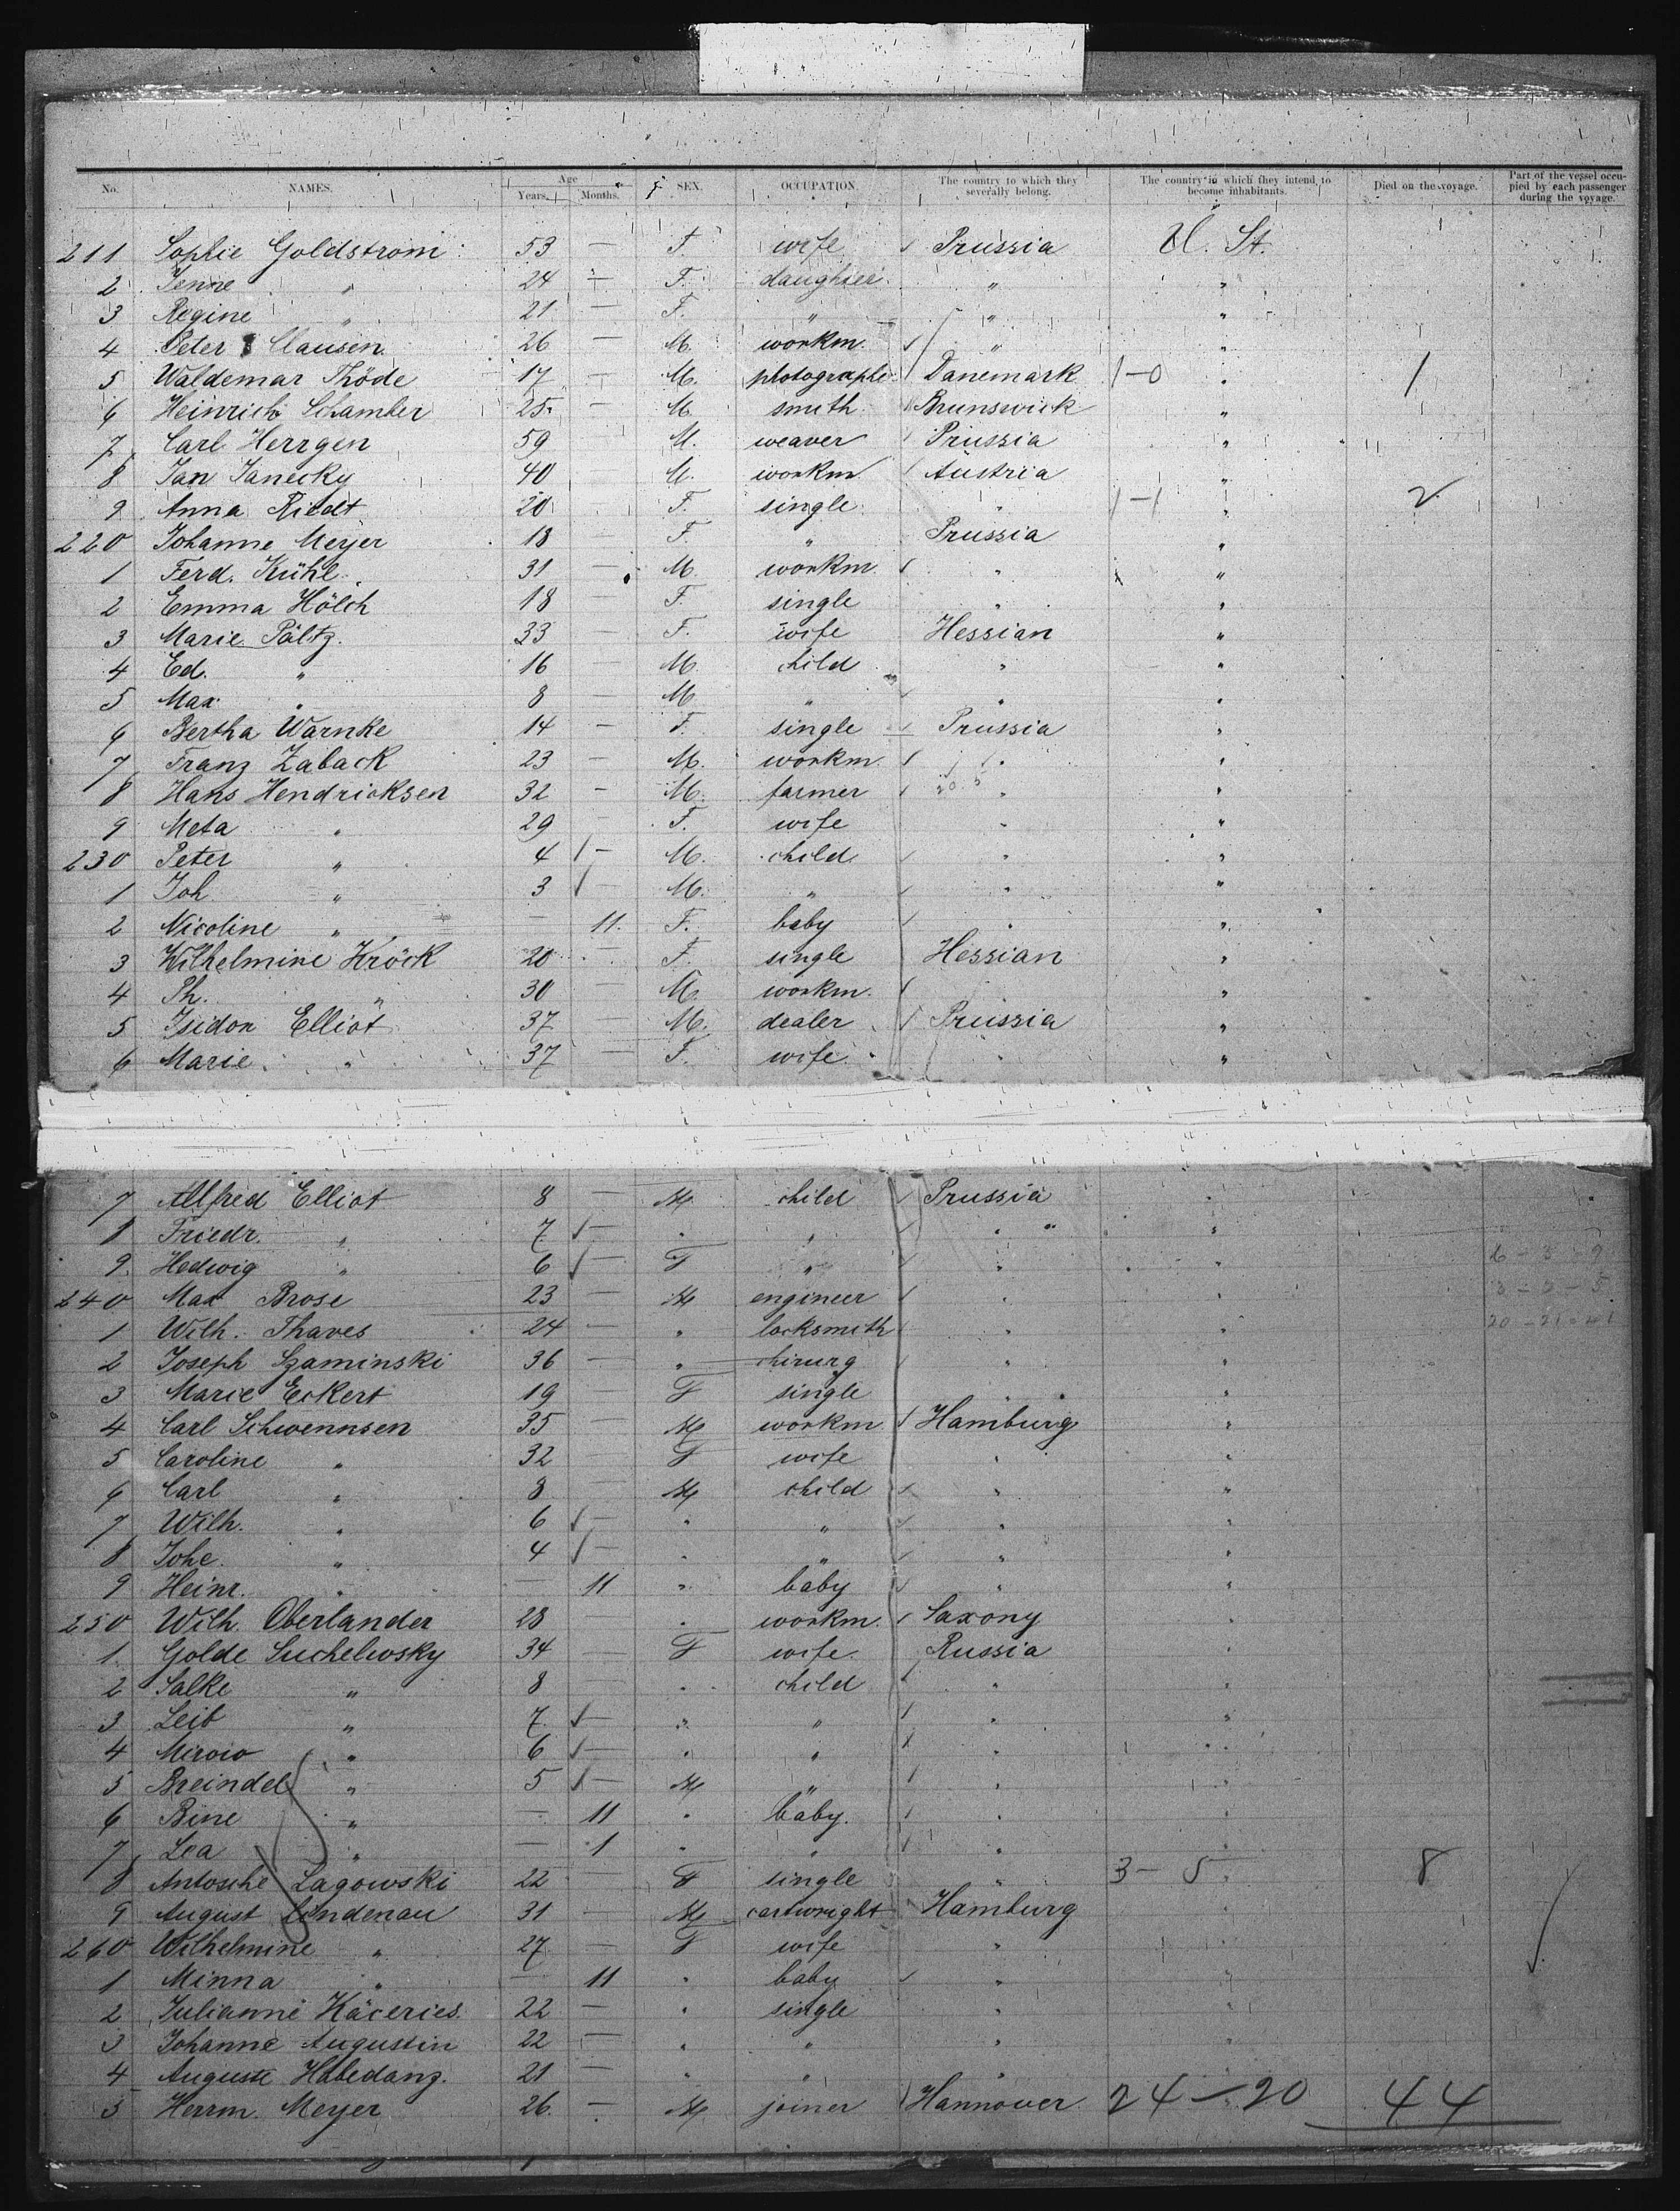 No. NAMES. Age Years. Months. SEX. OCCUPATION. The country to which they severally belong. The country in which they intend to become inhabitants. Died on the voyage. Part of the vessel occupied by each passenger during the voyage.
211 Sophie Goldstrom 53 — F. wife Prussia U. St.
2 Jenne " 24 — F. daughter " "
3 Regine " 21 — F. " " "
4 Peter Clausen 26 — M. workm. " "
5 Waldemar Thöde 17 — M. photographe Danemark 1-0 " 1
6 Heinrich Schamber 25 — M. smith Brunswick "
7 Carl Herrgen 59 M. weaver Prussia "
8 Jan Janecky 40 M. workm Austria "
9 Anna Riedt 20 F. single " 1-1 " 2
220 Johanne Meyer 18 — F. " Prussia "
1 Ferd. Kühl 31 — M. workm. " "
2 Emma Hölch 18 — F. single " "
3 Marie Pältz. 33 — F. wife Hessian "
4 Ed. " 16 — M. child " "
5 Max " 8 — M " " "
6 Bertha Warnke 14 — F. single Prussia "
7 Franz Zaback 23 — M. workm. " "
8 Hans Hendricksen 32 — M. farmer " "
9 Meta " 29 — F. wife " "
230 Peter " 4 — M. child " "
1 Joh " 3 — M. " " "
2 Nicoline " — 11. F. baby " "
3 Wilhelmine Kröck 20 F. single Hessian "
4 Ph. " 30 — M. workm. "
5 Isidor Elliot 37 — M. dealer Prussia "
6 Marie " 37 — F. wife " "
7 Alfred Elliot 8 — M child Prussia "
8 Friedr. " 7 — " " " "
9. Hedwig " 6 — F " " " 6-3-9
240 Max Brose 23 — M engineer " " 3-2-5
1 Wilh. Thaves 24 — " locksmith " " 20-21-41
2 Joseph Szaminski 36 — " chirurg " "
3 Marie Eckert 19 — F single " "
4 Carl Schwennsen 35 M workm Hamburg "
5 Caroline " 32 F wife " "
6 Carl " 8 — M child " "
7 Wilh. " 6 — " " " "
8 Johe. " 4 — " " " "
9 Heinr. " — 11 " baby " "
250 Wilh. Oberlander 28 — " workm. Saxony "
1 Golde Suchelewsky 34 — F wife. Russia "
2 Salke " 8 — " child " "
3 Leib " 7 — " " " "
4 " 6 — " " " "
5 Breindel " 5 — M " " "
6 Bine " — 11 " baby. " "
7 Lea " — 1 " " " "
8 Antosche Lagowski 22 — F single " 3-5 8
9 August Lindenau 31 — M cartwright Hamburg "
260 Wilhelmine " 27 — F wife " "
1 Minna " — 11 " baby " "
2 Julianne 22 — " single " "
3 Johanne Augustin 22 — " " " "
4 Auguste Habedang. 21 — " " "
5 Herrm. Meyer 26 — M joiner Hannover 24-20 44